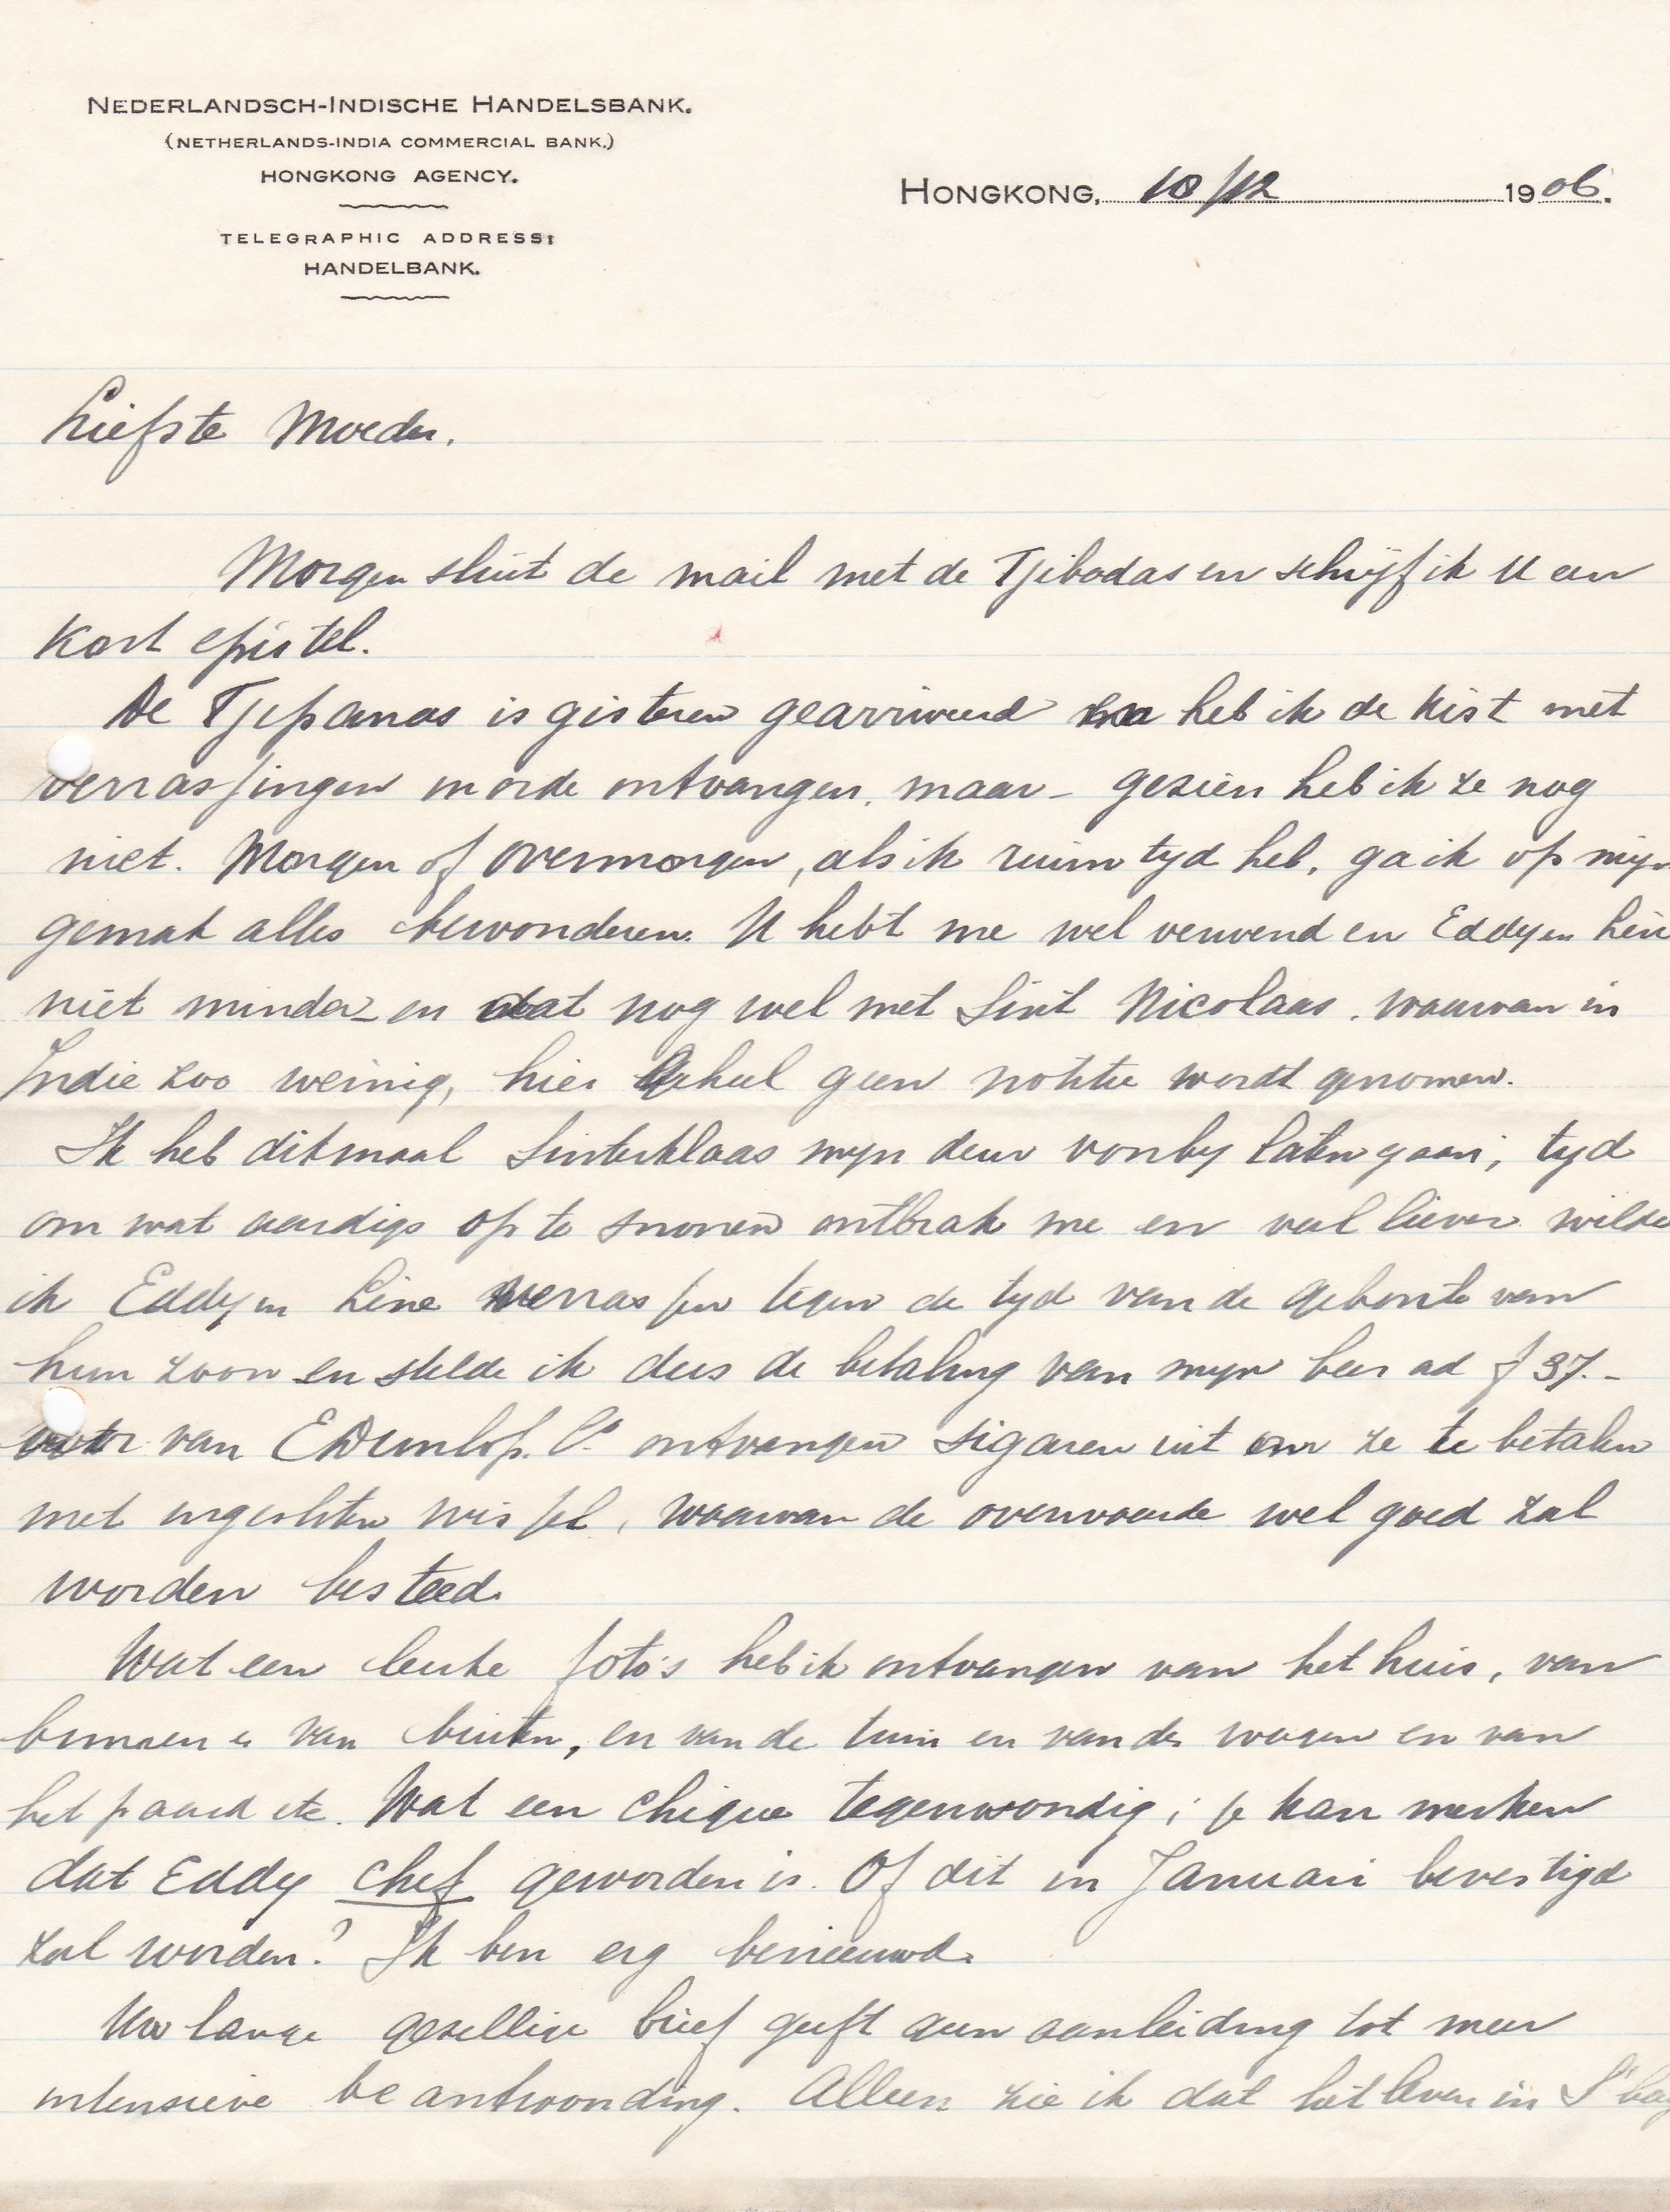 NEDERLANDSCH-INDISCHE HANDELSBANK.
(NETHERLANDS-INDIA COMMERCIAL BANK.)
HONGKONG AGENCY.
TELEGRAPHIC ADDRESS:
HANDELBANK.
HONGKONG, 10/12 1906.
Liefste Moeder.
Morgen sluit de mail met de Tjibodas en schrijf ik U een
kort epistel.
De Tjipanas is gisteren gearriveerd heb ik de kist met
verrassingen in orde ontvangen, maar - gezien heb ik ze nog
niet. Morgen of overmorgen, als ik ruim tyd heb, ga ik op mijn
gemak alles bewonderen. U hebt me wel verwend en Eddy en Line
niet minder - en dat nog wel met Sint Nicolaas, waarvan in
Indie zoo weinig, hier geheel geen notitie wordt genomen.
Ik heb ditmaal Sinterklaas myn deur voorby laten gaan; tyd
om wat aardigs op te snorren ontbrak me en veel liever wilde
ik Eddy en Line verrassen tegen de tyd van de geboorte van
hun zoon en stelde ik dus de betaling van myn beer ad f 37.-
voor van E Dunlop. Co. ontvangen sigaren uit om ze te betalen
met ingesloten wissel, waarvan de overwaarde wel goed zal
worden besteed.
Wat een leuke foto's heb ik ontvangen van het huis, van
binnen en van buiten, en van de tuin en van de wagen en van
het paard etc. Wat een chique tegenwoordig; je kan merken
dat Eddy chef geworden is. Of dit in Januari bevestigd
zal worden? Ik ben erg benieuwd.
Uw lange gezellige brief geeft geen aanleiding tot meer
intensieve beantwoording. Alleen zie ik dat het leven in S'bay